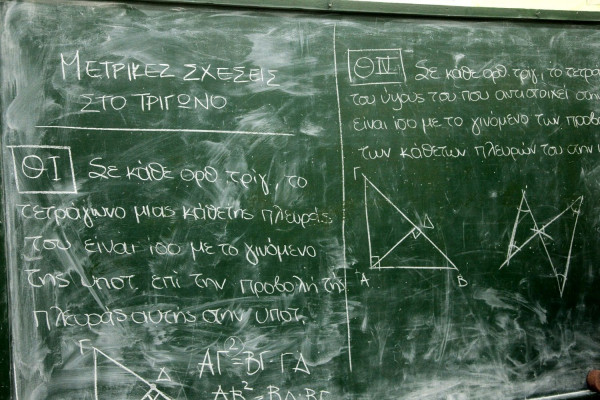 ΜΕΤΡΙΚΕΣ ΣΧΕΣΕΙΣ
ΣΤΟ ΤΡΙΓΩΝΟ
ΘΙ Σε κάθε ορθ. τρίγ., το
τετράγωνο μιας κάθετης πλευράς
του είναι ίσο με το γινόμενο
της υποτ. επί την προβολή της
πλευράς αυτής στην υποτ.
Γ
Δ
ΑΓ²=ΒΓ·ΓΔ
ΑΒ²=ΒΔ·ΒΓ
ΘIV Σε κάθε ορθ. τρίγ., το τετρά
του ύψους του που αντιστοιχεί στην
είναι ίσο με το γινόμενο των προβο
των κάθετων πλευρών του στην
Γ
Δ
Α
Β